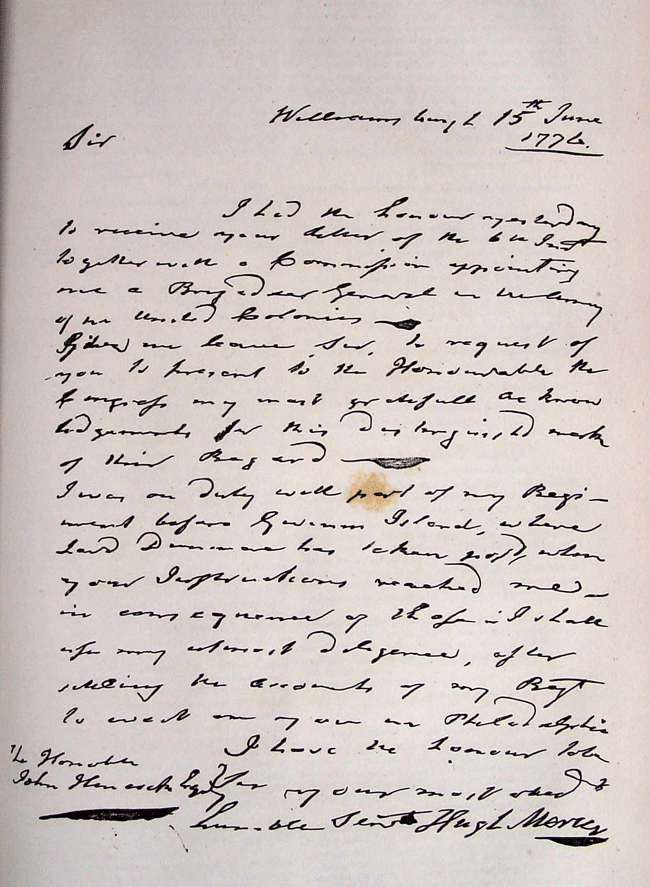 Williamsburgh 15th June
1776.
Sir
I had the honour yesterday
to receive your letter of the 6th Inst
together with a Commission appointing
me a Brigadier General in the Army
of the United Colonies
Give me leave, Sir, to request of
you to present to the Honourable the
Congress my most gratefull Acknow
ledgements for this distinguish'd mark
of their Regard
I was on duty with part of my Regi-
ment before Gwinns Island, where
Lord Dunmore has taken post, when
your Instructions reached me-
in consequence of those I shall
use my utmost diligence, after
settling the accounts of my Regt
to wait on you in Philadelphia
I have the honour to be
The Honorble Sir your most obed
John Hancock Esqr
humble Servt Hugh Mercer